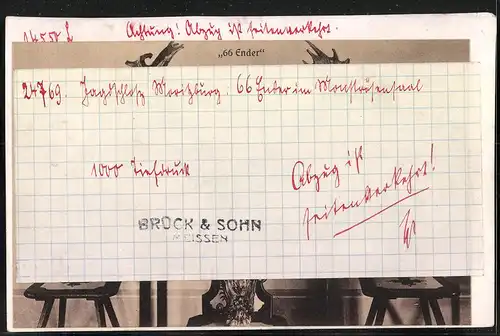 14551 L
Achtung! Abzug ist seitenverkehrt.
„66 Ender“
24769. Jagdschloss Moritzburg. 66 Ender im Monströsensaal
1000 Tiefdruck
Abzug ist
seitenverkehrt!
BRÜCK & SOHN
MEISSEN